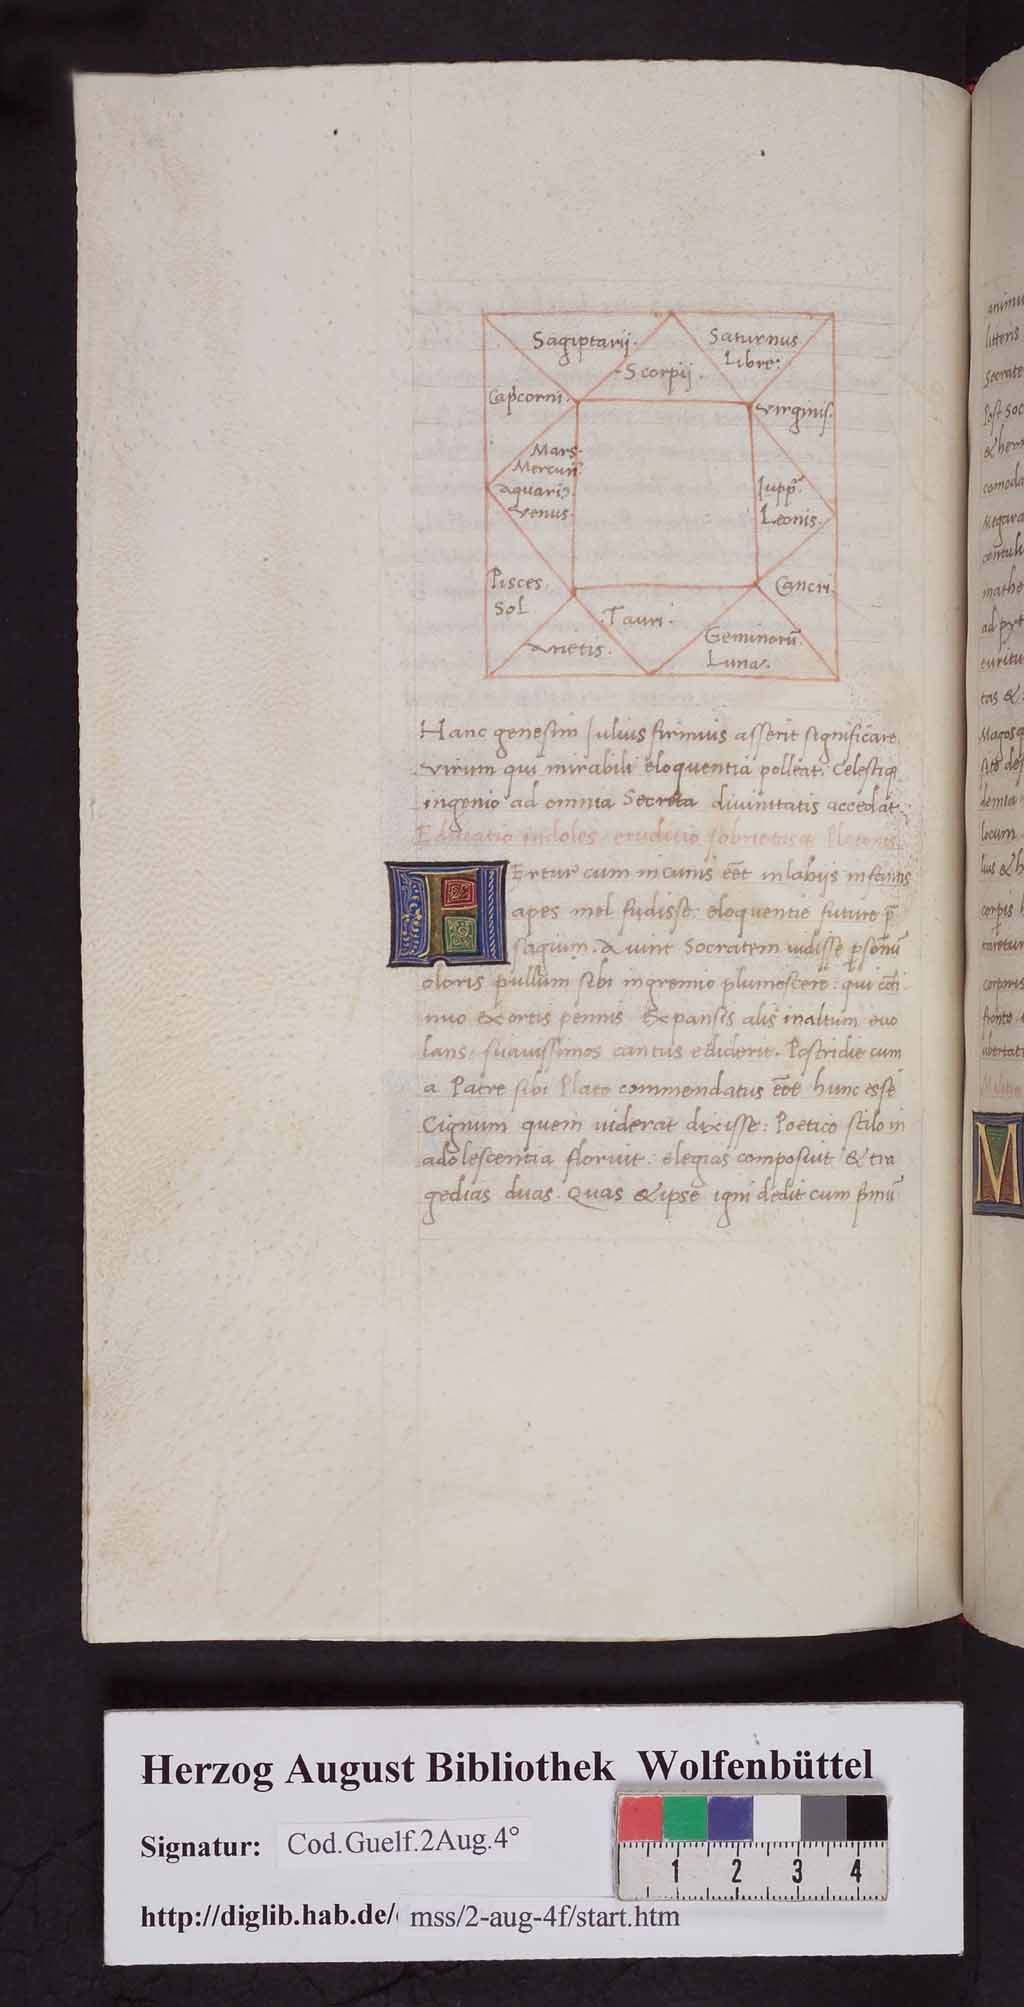 Sagiptarij·
Saturnus
Libre:
·Scorpij·
Cap̃corni·
Virginis·
Mars·
Mercuri9
Aquari9·
Venus·
Jupp̃
Leonis·
Pisces·
Sol
Cancri·
·Tauri·
Arietis·
Geminorũ
Luna·
Hanc genesim Julius firmius asserit significare
virum qui mirabili eloquentia polleat. Celestiq
ingenio ad omnia Secreta divinitatis accedat·
Educatio indoles eruditio sobrietasq Platonis
FErtur cum in cunis eēt in labijs infantis
apes mel fudisse: eloquentie future p̄
sagium. Aiunt Socratem uidisse p̱somnũ
oloris pullum sibi ingremio plumescere: qui cōti
nuo exortis pennis Expansis alis inaltum evo
lans, suauissimos cantus ediderit. Postridie cum
a Patre sibi Plato commendatus eēt hunc esse
Cignum quem uiderat dixisse: Poetico stilo in
adolescentia floruit: elegias composuit & tra
gedias duas. Quas & ipse igni dedit cum p̱mũ
animu
litteris
Secrate
Post Soc
& herm
comoda
Megara
mathe
ad pyt
euritu
tas &
Magosq
demia
locum
lius & h
corp̱is
corporis
fronte
ubertat
M
Herzog August Bibliothek Wolfenbüttel
Signatur: Cod.Guelf.2Aug.4°
1 2 3 4
http://diglib.hab.de/ mss/2-aug-4f/start.htm